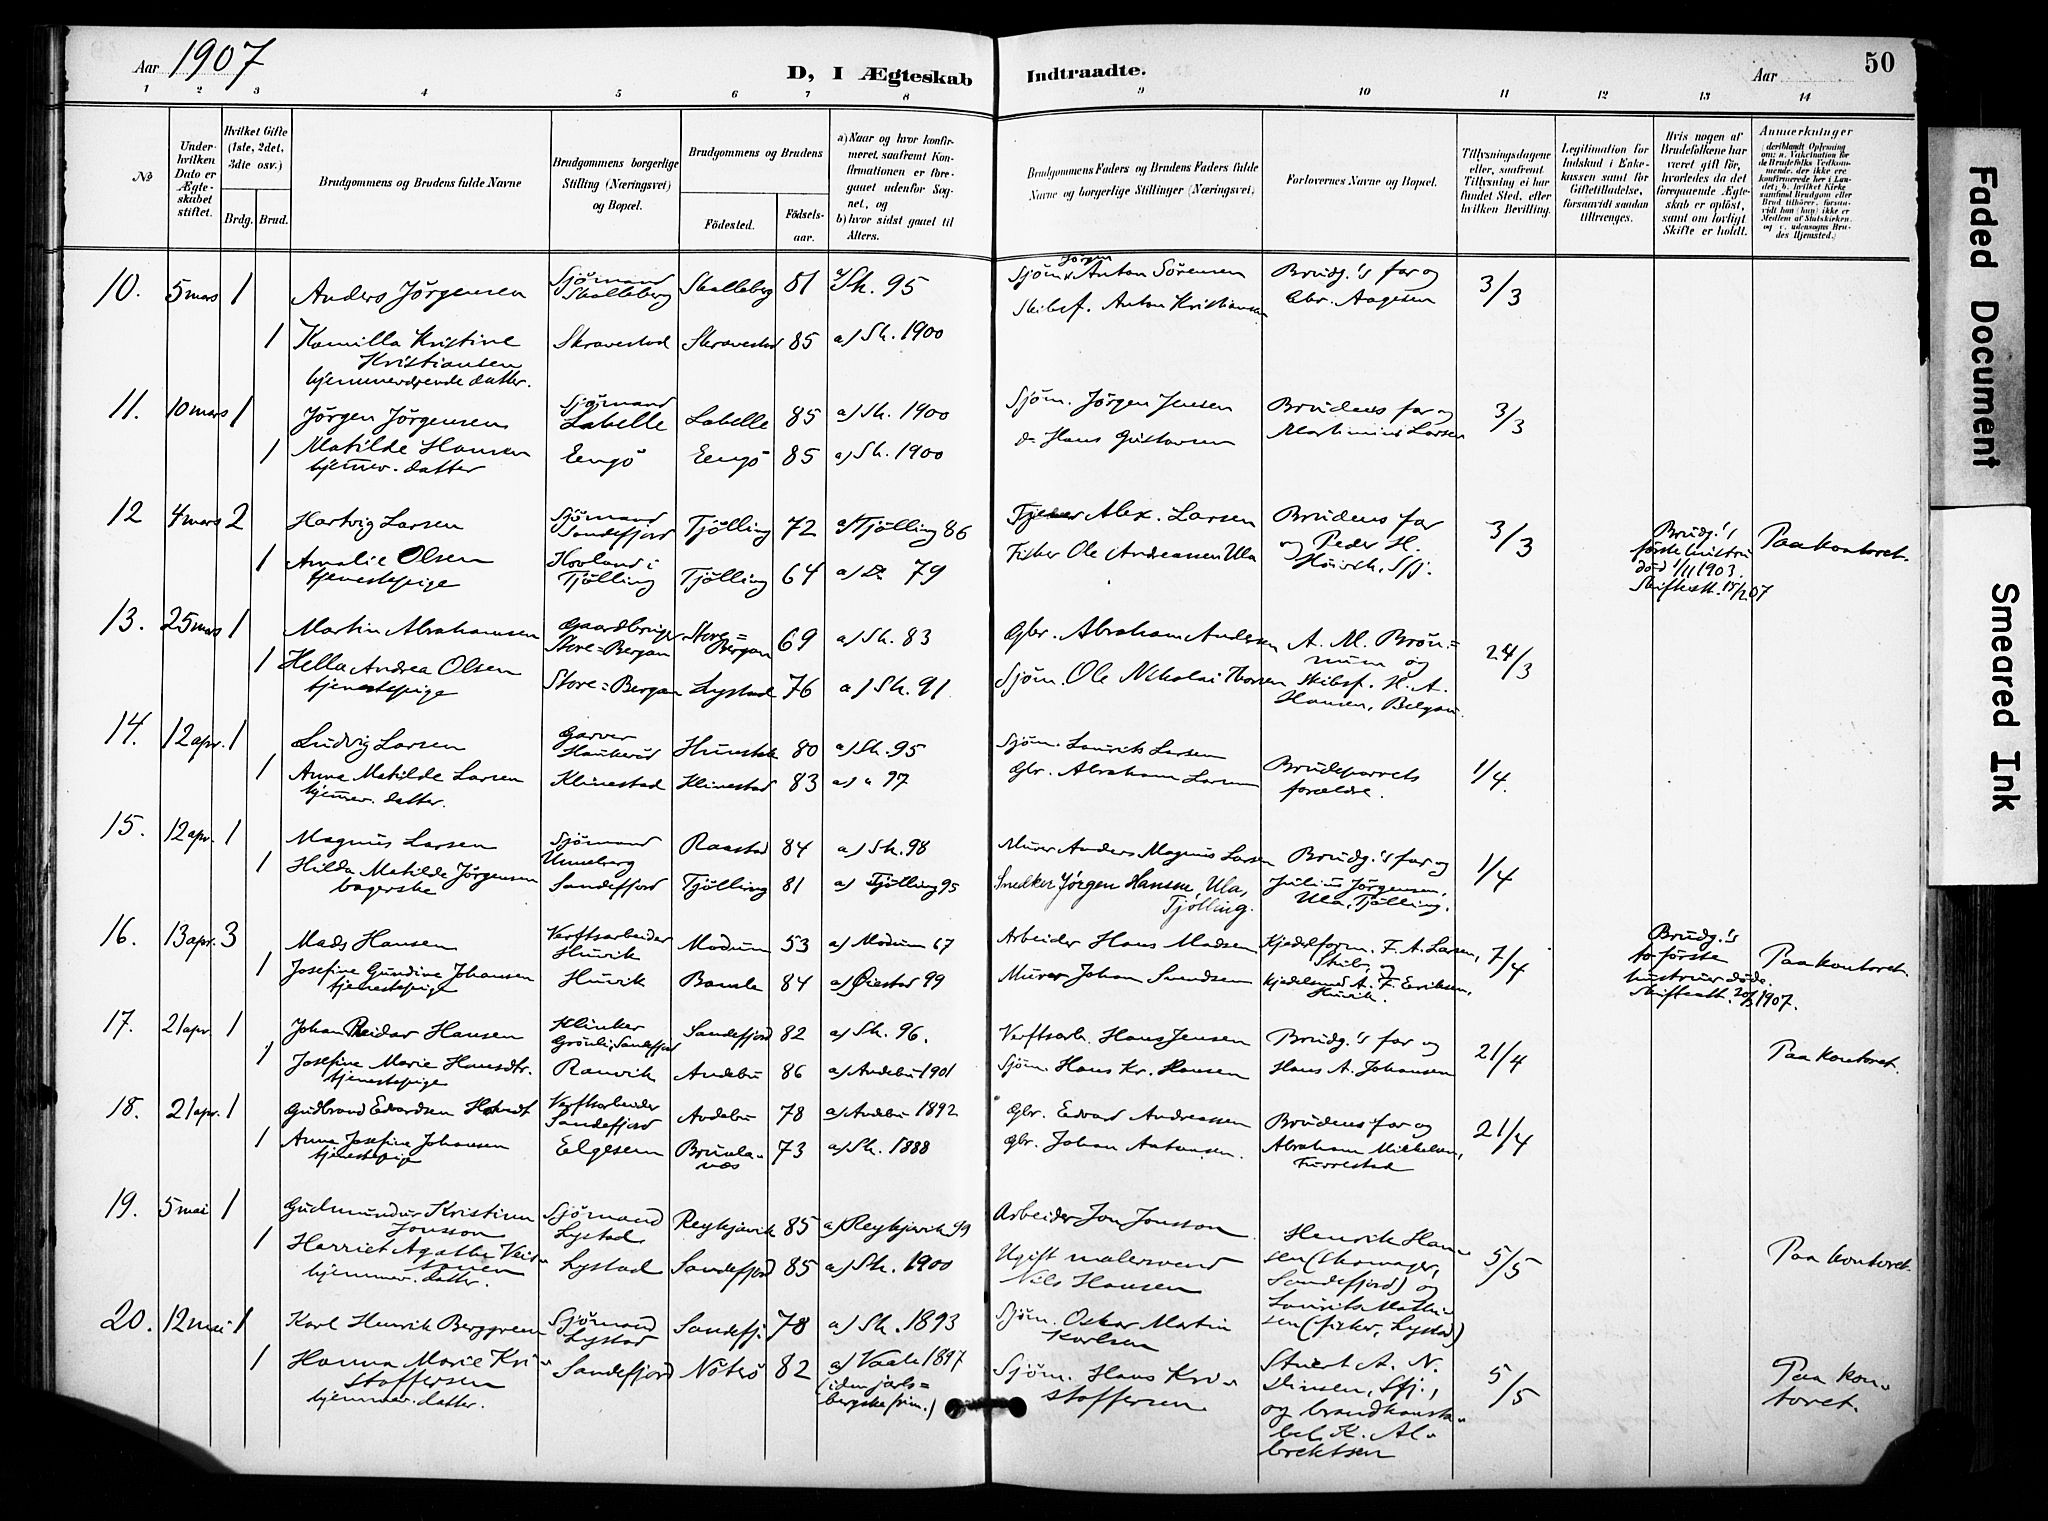 Aar 1907
D, I Ægteskab Indtraadte.
Aar
50
1 2 3 4 5 6 7 8 9 10 11 12 13 14
No
Under-
hvilken
Dato er
Ægte-
skabet
stiftet.
Hvilket Gifte
(1ste, 2det,
3die osv.)
Brdg. Brud.
Brudgommens og Brudens fulde Navne
Brudgommens borgerlige
Stilling (Næringsvei)
og Bopæl.
Brudgommens og Brudens
Födested.
Födsels-
aar.
a) Naar og hvor konfir-
meret, saafremt Kon-
firmationen er fore-
gaaet udenfor Sog-
net, og
b) hvor sidst gaaet til
Alters.
Brudgommens Faders og Brudens Faders fulde
Navne og borgerlige Stillinger (Næringsvei)
Forlovernes Navne og Bopæl.
Tillysningsdagene
eller, saafremt
Tillysning ei har
fundet Sted, efter
hvilken Bevilling.
Legitimation for
Indskud i Enke-
kassen samt for
Giftetilladelse,
forsaavidt saadan
tiltrænges.
Hvis nogen af
Brudefolkene har
været gift för,
hvorledes da det
foregaaende Ægte-
skab er oplöst,
samt om lovligt
Skifte er holdt.
Anmærkninger
10. 5 mars 1 Anders Jörgensen Sjömand Skalleberg Skalleberg 81 a) Sh. 95 Sjöm. Jörgen Anton Sörensen Brudg.'s far og 3/3
1 Kamilla Kristine Skravestad Skravestad 85 a) Sh. 1900 Skibsf. Anton Kristiansen Gbr. Aagesen
Kristiansen
hjemmeværende datter.
11. 10 mars 1 Jörgen Jörgensen Sjömand Labelle Labelle 85 a) Sh. 1900 Sjöm. Jörgen Jensen Brudens far og 3/3
1 Matilde Hansen Engö Engö 85 a) Sh. 1900 do Hans Gustavsen Martinius Larsen
hjemmev. datter
12 4 mars 2 Hartvig Larsen Sjömand Sandefjord Tjölling 72 a) Tjölling 86 Alex. Larsen Brudens far 3/3 Brudg.'s
1 Amalie Olsen Hovland i Tjölling Tjölling 64 a) do 79 Fisker Ole Andreassen Ula og Peder H. förste hustru Paa kontoret.
tjenestepige Sfj. död 1/11 1903.
Skifteatt. 15/2 07
13. 25 mars 1 Martin Abrahamsen Gaardbruger Store=Bergan Store=Bergan 69 a) Sh. 83 Gbr. Abraham Andersen A. M. Brön= 24/3
1 Hella Andrea Olsen Store=Bergan Lystad 76 a) Sh. 91 Sjöm. Ole Nikolai Thorsen num og Skibsf. H. A.
tjenestepige Hansen, Bergan.
14. 12 apr. 1 Ludvig Larsen Garver Haukeröd Hunstok 80 a) Sh. 95 Sjöm. Laurits Larsen Brudeparrets 1/4.
1 Anna Matilde Larsen Klinestad Klinestad 83 a) " 97 Gbr. Abraham Larsen forældre.
hjemmev. datter.
15. 12 apr. 1 Magnus Larsen Sjömand Unneberg Raastad 84 a) Sh. 98 Murer Anders Magnus Larsen Brudg.'s far og 1/4
1 Hilda Matilde Jörgensen Sandefjord Tjölling 81 a) Tjölling 95 Snedker Jörgen Hansen, Ula, Julius Jörgensen,
bagerske Tjölling. Ula, Tjölling.
16. 13 apr. 3 Mads Hansen Verftsarbeider Huvik Modum 53 a) Modum 67 Arbeider Hans Madsen Kjedelform. F. A. Larsen, 7/4 Brudg.'s
1 Josefine Gundine Johansen Huvik Bamle 84 a) Öiestad 99 Murer Johan Svendsen Kjedelsmed A. F. Eriksen, to förste Paa kontoret.
tjenestepige Huvik. hustruer döde.
Skifteatt. 1907.
17. 21 apr. 1 Johan Reidar Hansen Klinker Grönli, Sandefjord Sandefjord 82 a) Sh. 96. Verftsarb. Hans Jensen Brudg.'s far og 21/4 Paa kontoret.
1 Josefine Marie Hansdtr. Ranvik Andebu 86 a) Andebu 1901 Sjöm. Hans Kr. Hansen Hans A. Johansen
tjenestepige
18. 21 apr. 1 Gudbrand Edvardsen Verftsarbeider Sandefjord Andebu 78 a) Andebu 1892 Gbr. Edvard Andreassen Brudens far og 21/4
1 Anna Josefine Johansen Elgesem Brunla-næs 73 a) Sh. 1888 Gbr. Johan Antonsen. Abraham Mikkelsen,
tjenestepige Furrestad
19. 5 mai 1 Gudmundur Kristinn Sjömand Lystad Reykjavik 85 a) Reykjavik 99 Arbeider Jon Jonsson Henrik Han- 5/5
Jonsson
1 Harriet Agathe Lystad Sandefjord 85 a) Sh. 1900 Ugift malersvend sen (skomager, Paa kontoret.
hjemmev. datter. Nils Hansen Sandefjord) og
Laurits Mathi-
20. 12 mai 1 Karl Henrik Berggren Sjömand Lystad Sandefj. 78 a) Sh. 1893 Sjöm. Oskar Martin sen (fisker, Lystad)
Karlsen
1 Hanna Marie Kri- Sandefjord Nöterö 82 a) Vaale 1897 Sjöm. Hans Kri- Stuert A. N. 5/5 Paa kon-
stoffersen (i den jarls= stoffersen Dinsen, Sfj., toret.
hjemmev. datter. bergske frim.) og brandkonsta-
bel K. Al-
brektsen
Faded Document
Smeared Ink